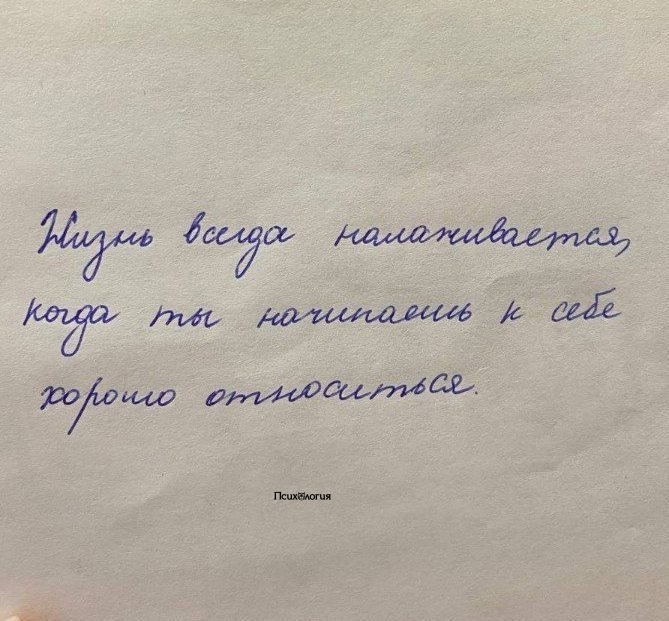 Жизнь всегда налаживается,
когда ты начинаешь к себе
хорошо относиться.
Психология